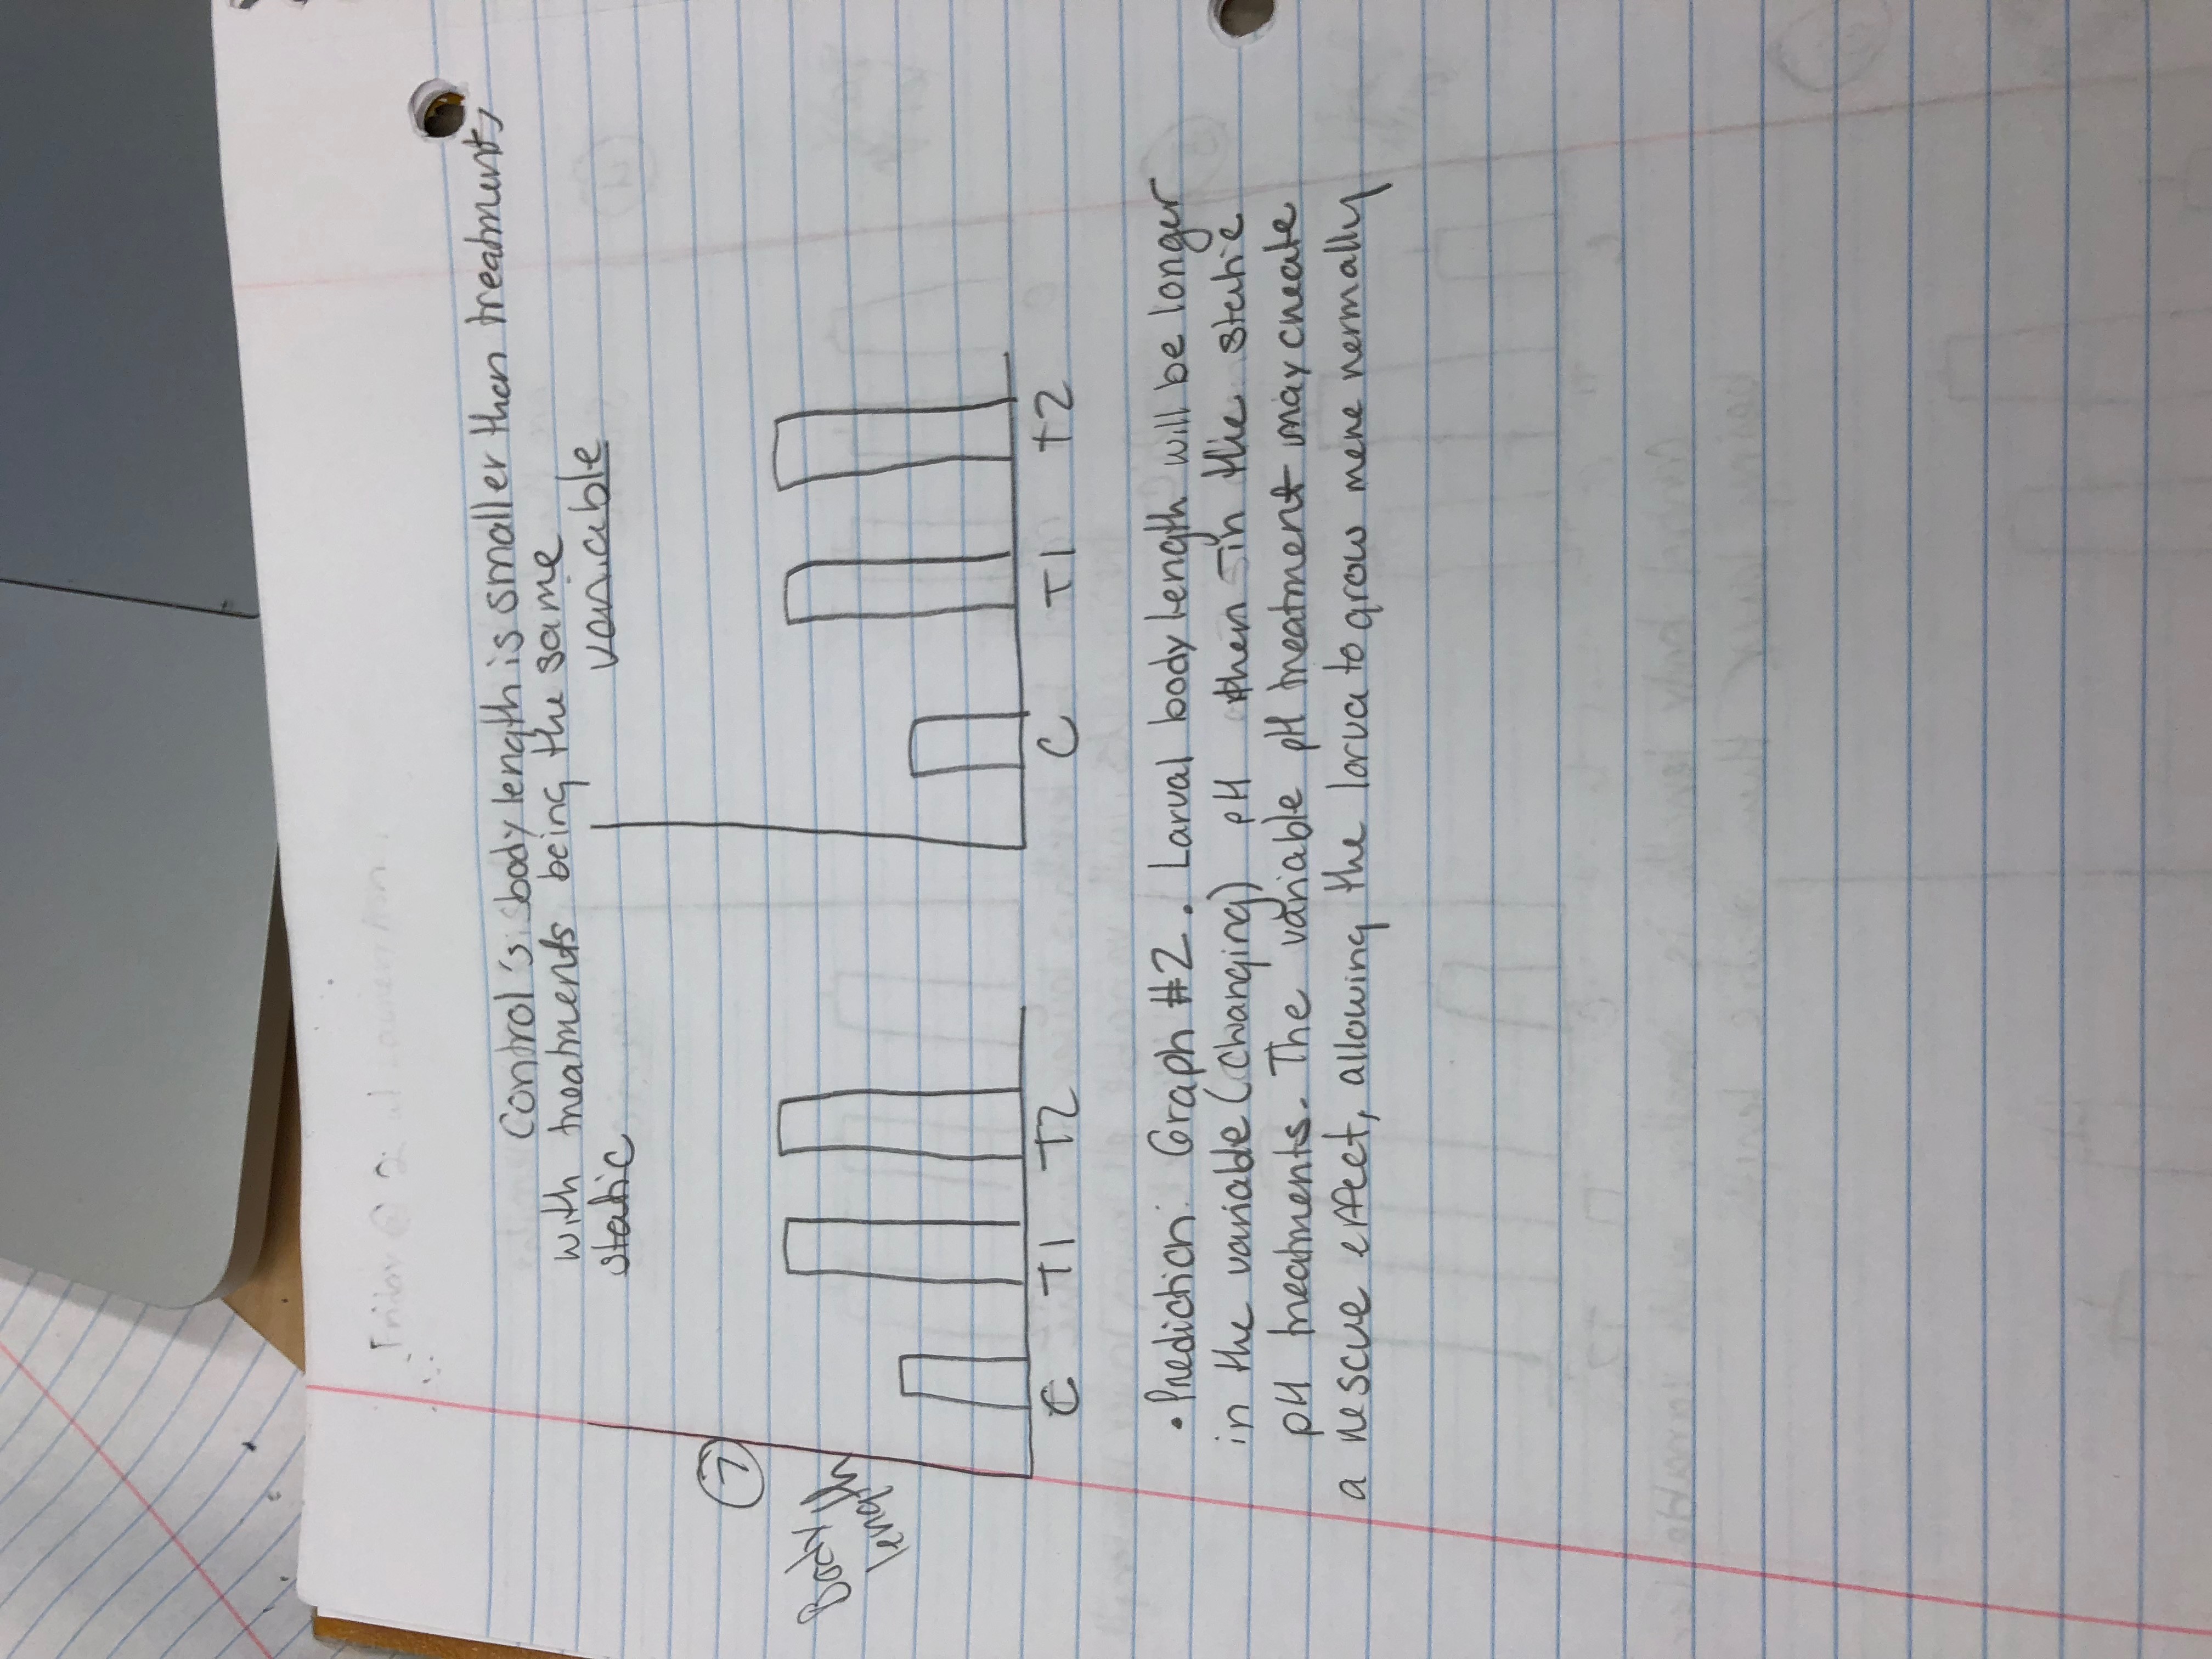 Control's body length is smaller than treatment,
with treatments being the same
static variable
7
Body
length
C T1 T2 C T1 T2
• Prediction: Graph #2. Larval body length will be longer
in the variable (changing) pH then in the static
pH treatments. The variable pH treatment may create
a rescue effect, allowing the larva to grow more normally